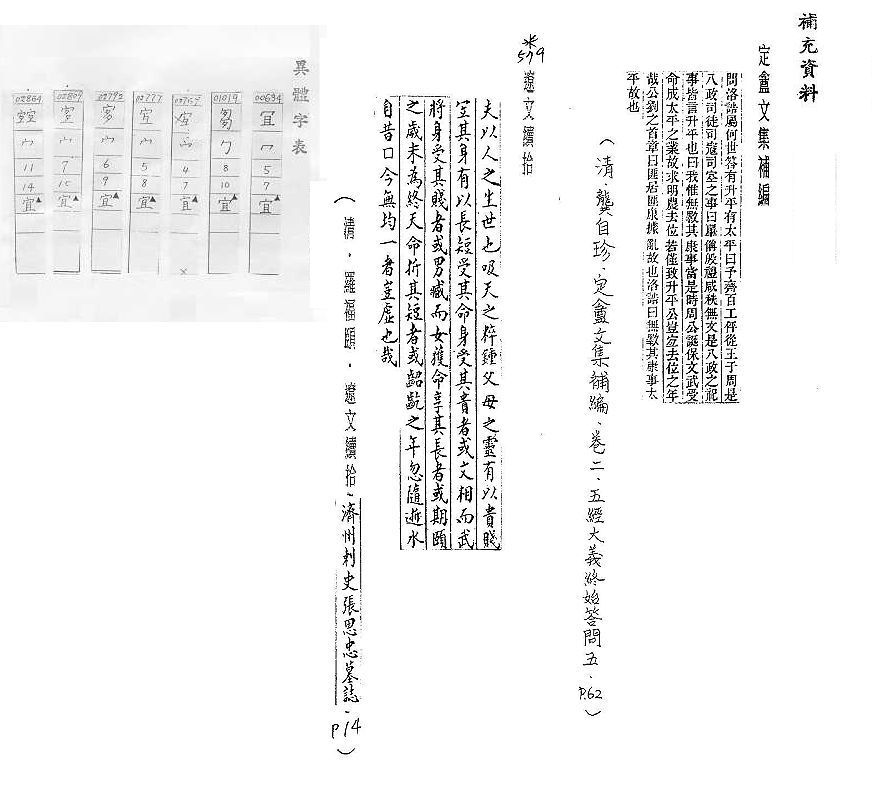 補充資料
定盦文集補編
問洛誥屬何世答有升平有太平曰予齊百工伻從王于周是
八政司徒司寇司空之事曰肇偁殷禮咸秩無文是八政之祀
事皆言升平也曰我惟無斁其康事當是時周公誕保文武受
命成太平之業故求明農去位若僅致升平公豈宜去位之年
哉公劉之首章曰匪居匪康據亂故也洛誥曰無斁其康事太
平故也
(清.龔自珍.定盦文集補編.卷二.五經大義終始答問五.P.62)
※579
遼文續拾
夫以人之生世也吸天之粹鍾父母之靈有以貴賤
其身有以長短受其命身受其貴者或文相而武
將身受其賤者或男臧而女獲命享其長者或期頤
之歲未為終天命折其短者或齠齔之年忽隨逝水
自昔口今無均一者豈虛也哉
(清.羅福頤.遼文續拾.濟州刺史張思忠墓誌.P14)
異體字表
00694 冝 冖 5 7 宜▲
01019 勹 8 10 宜▲
02759 宀 4 7 宜▲ ×
02777 宀 5 8 宜▲
02792 宀 6 9 宜▲
02809 宀 7 10 宜▲
02864 宀 11 14 宜▲